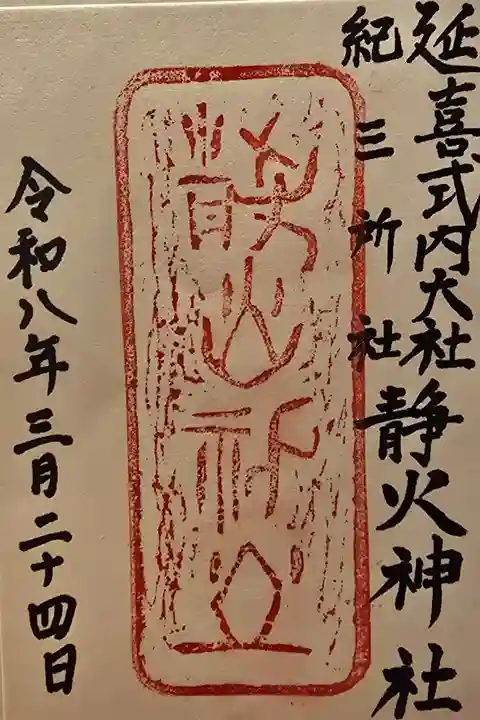 延喜式内大社 静火神社
紀三所社
静火神社
令和八年三月二十四日